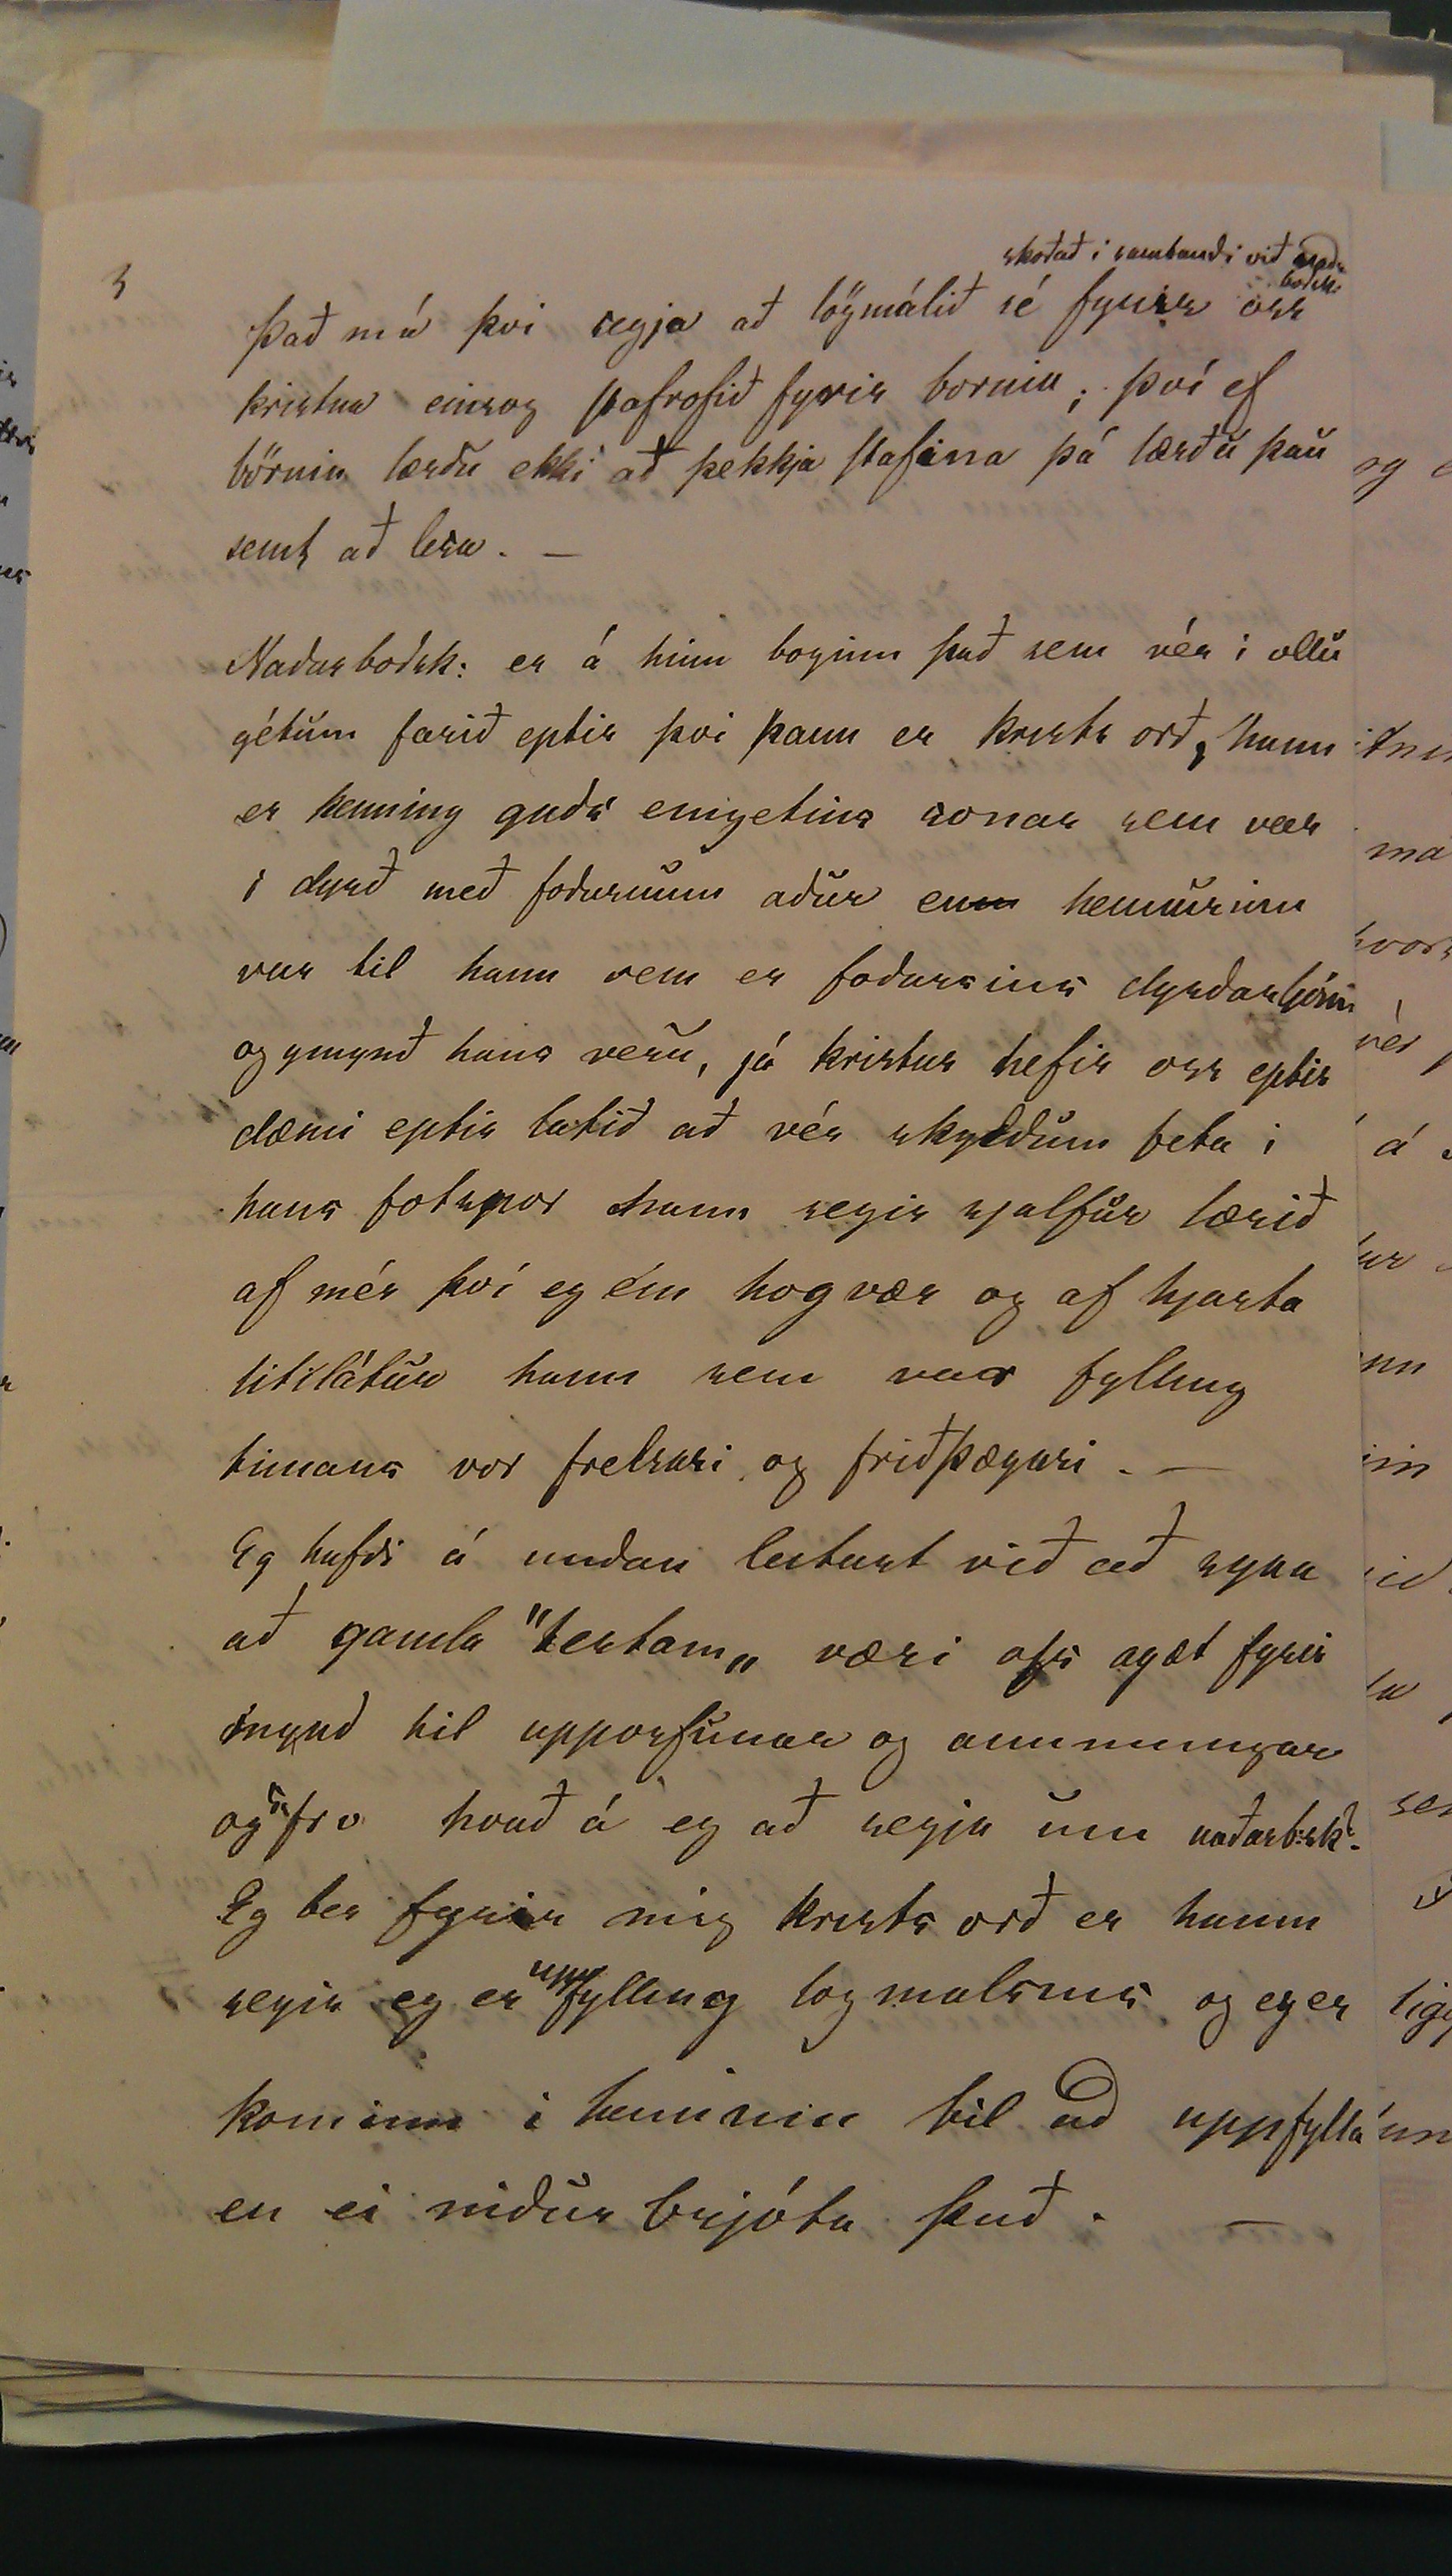 3
skoðað i sambandi við naðar
boðsk:
Það má þvi segja að lögmálið sé fyrir oss
kristna einsog stafrofið fyrir bornin; því ef
börnin lærðu ekki að þekkja stafina þá lærðu þau
seint að lesa. —
Naðarboðsk: er á hinn boginn það sem vér i ollu
gétum farið eptir þvi þann er Krists orð, hann
er kenning guðs eingetins sonar sem var
i dyrð með foðurnum aður en heimurinn
var til hann sem er foðursins dyrðarljómi
og ymynd hans veru, já kristur hefir oss eptir
dæmi eptir latið að vér skyldum feta i
hans fotspor hann segir sjalfur lærið
af mér því eg em hogvær og af hjarta
litilátur hann sem var fylling
timans vor frelsari og friðþægari. —
Eg hafði á undan leitast við að syna
að gamla "testam„ væri oss agæt fyrir
mynd til upporfunar og aminningar
og s: fr v hvað á eg að segja um naðarb:sk:.
Eg ber fyrir mig Krists orð er hann
segir eg er uppfylling logmalsins og eg er
kominn i heiminn til að uppfylla
en ei niður brjóta það. —